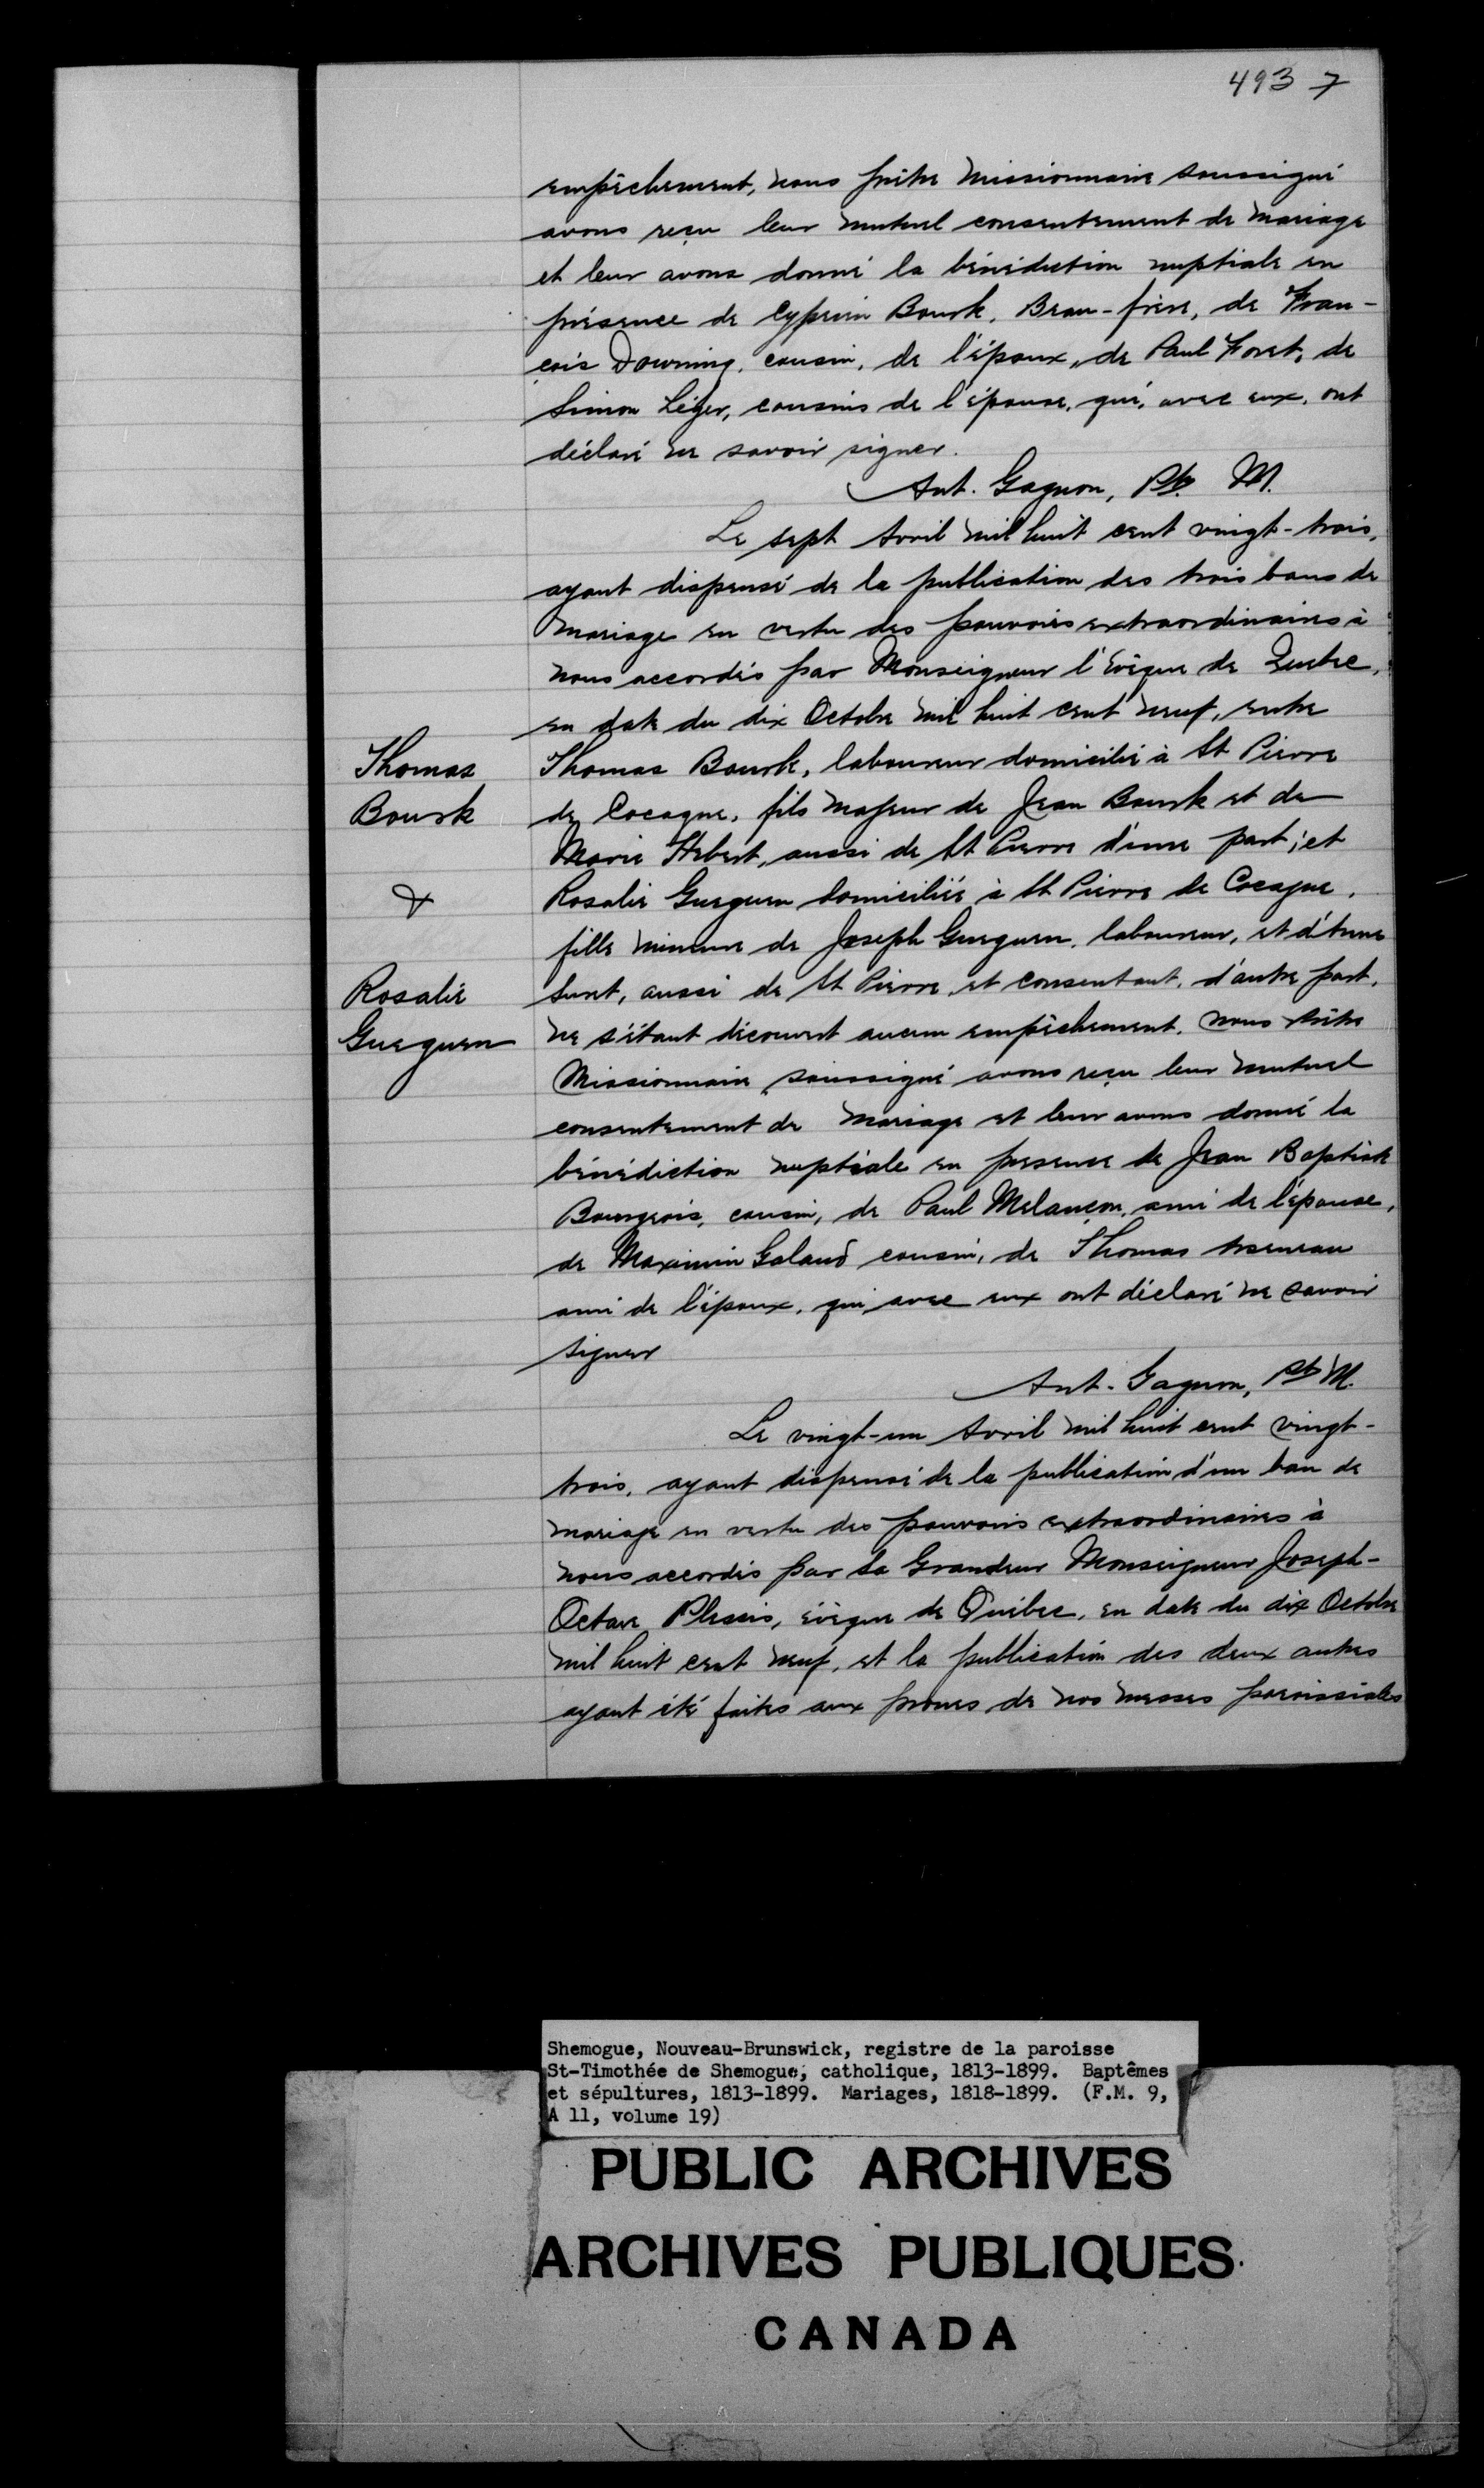 493 7
empêchement, nous prêtre missionnaire soussigné
avons reçu leur mutuel consentement de mariage
et leur avons donné la bénédiction nuptiale en
présence de Cyprien Bourk, Beau-frère, de Fran-
çois Downing, cousin, de l'époux, de Paul Foret, de
Simon Léger, cousins de l'épouse, qui, avec eux, ont
déclaré ne savoir signer.
Ant. Gagnon, Ptr. M.
Le sept Avril mil huit cent vingt-trois,
ayant dispensé de la publication des trois bans de
mariage en vertu des pouvoirs extraordinaires à
nous accordés par Monseigneur l'évêque de Quebec,
en date du dix Octobre mil huit cent neuf, entre
Thomas Thomas Bourk, laboureur domicilié à St Pierre
Bourk de Cocagne, fils majeur de Jean Bourk et de
Marie Hebert, aussi de St Pierre d'une part; et
& Rosalie Gueguen domiciliée à St Pierre de Cocagne,
fille mineure de Joseph Gueguen, laboureur, et
Rosalie aussi de St Pierre, et consentant, d'autre part,
Gueguen ne s'étant découvert aucun empêchement, nous Prêtre
Missionnaire soussigné avons reçu leur mutuel
consentement de mariage et leur avons donné la
bénédiction nuptiale en presence de Jean Baptiste
Bourgeois, cousin, de Paul Melançon, ami de l'épouse,
de Maximin Galand cousin, de Thomas
ami de l'époux, qui avec eux ont déclaré ne savoir
signer
Ant. Gagnon, Ptr M.
Le vingt-un Avril mil huit cent vingt-
trois, ayant dispensé de la publication d'un ban de
mariage en vertu des pouvoirs extraordinaires à
nous accordés par Sa Grandeur Monseigneur Joseph-
Octave Plessis, évêque de Québec, en date du dix Octobre
mil huit cent neuf, et la publication des deux autres
ayant été faites aux prones de nos messes paroissiales
Shemogue, Nouveau-Brunswick, registre de la paroisse
St-Timothée de Shemogue, catholique, 1813-1899. Baptêmes
et sépultures, 1813-1899. Mariages, 1818-1899. (F.M. 9,
A 11, volume 19)
PUBLIC ARCHIVES
ARCHIVES PUBLIQUES
CANADA